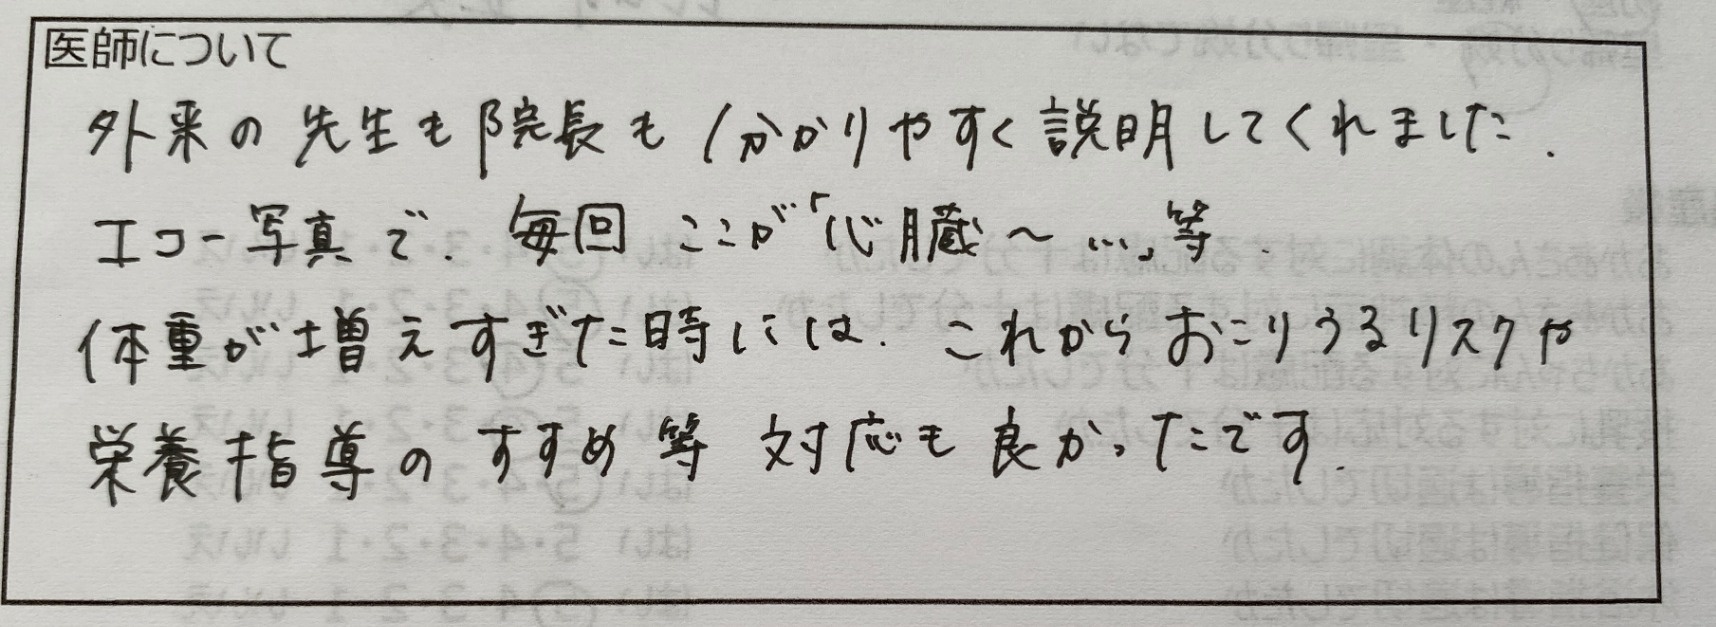 医師について
外来の先生も院長も分かりやすく説明してくれました.
エコー写真で. 毎回 ここが「心臓~…」等.
体重が増えすぎた時には. これからおこりうるリスクや
栄養指導のすすめ等 対応も良かったです.